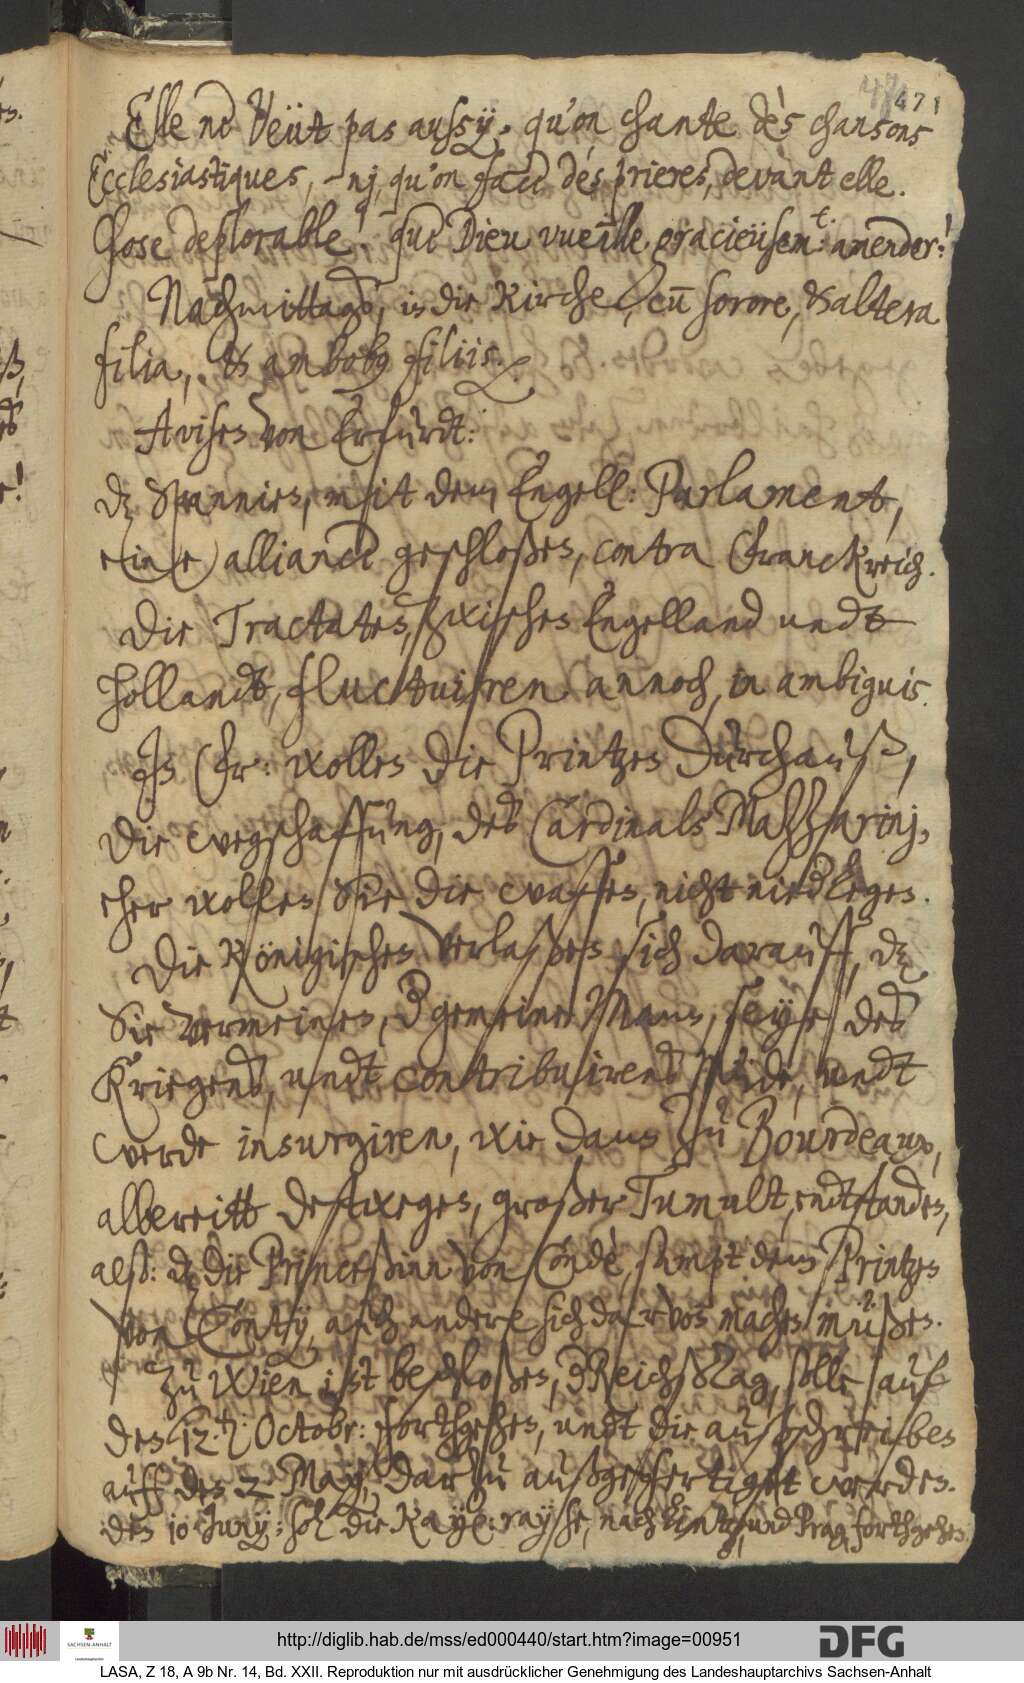 471
Elle ne Veüt pas aussÿ, qu'on chante dès chansons
Ecclesiastiques, nj, qu'on face dès prieres, devant elle.
Chose deplorable! que Dieu vueille gracieüsem:t amender!
Nachmittagß, in die Kirche, cũ sorore, & altera
filia, & amboby filiis.
Avisen von Erfurdt:
dz Spannien, mit dem Engell: Parlament,
eine alliance geschloßen, contra Franckreich.
Die Tractaten, zwischen Engelland undt
Hollandt, fluctuiren annoch, in ambiguis.
In Fr: wollen die Printzen durchauß,
die wegschaffung, deß Cardinals Mazzarinj,
eher wollen Sie die waffen, nicht niedlegen.
Die Königischen verlaßen sich darauff, dz
Sie vermeinen, d gemeine Mann, seye deß
Kriegenß, undt contribuirenß müde, undt
werde insurgiren, wie dann zu Bourdeaux,
allbereitt deßwegen, großer Tumult, endtstanden,
alß: dz die Princeßinn von Condè, sampt dem Printzen
von Contÿ, auch andere sich darvon machen müßen.
Zu Wien ist beschloßen, d ReichßTag, solle auf
den 12.t: Octobr: forthgehen, undt die außschreiben
auff den 2. May, darzu außgefertiget werden.
den 10 Junÿ: soll die Kayß: rayse, nach Lintz, und Prag, forthgehen.
http://diglib.hab.de/mss/ed000440/start.htm?image=00951
SACHSEN-ANHALT
Landeshauptarchiv
DFG
LASA, Z 18, A 9b Nr. 14, Bd. XXII. Reproduktion nur mit ausdrücklicher Genehmigung des Landeshauptarchivs Sachsen-Anhalt